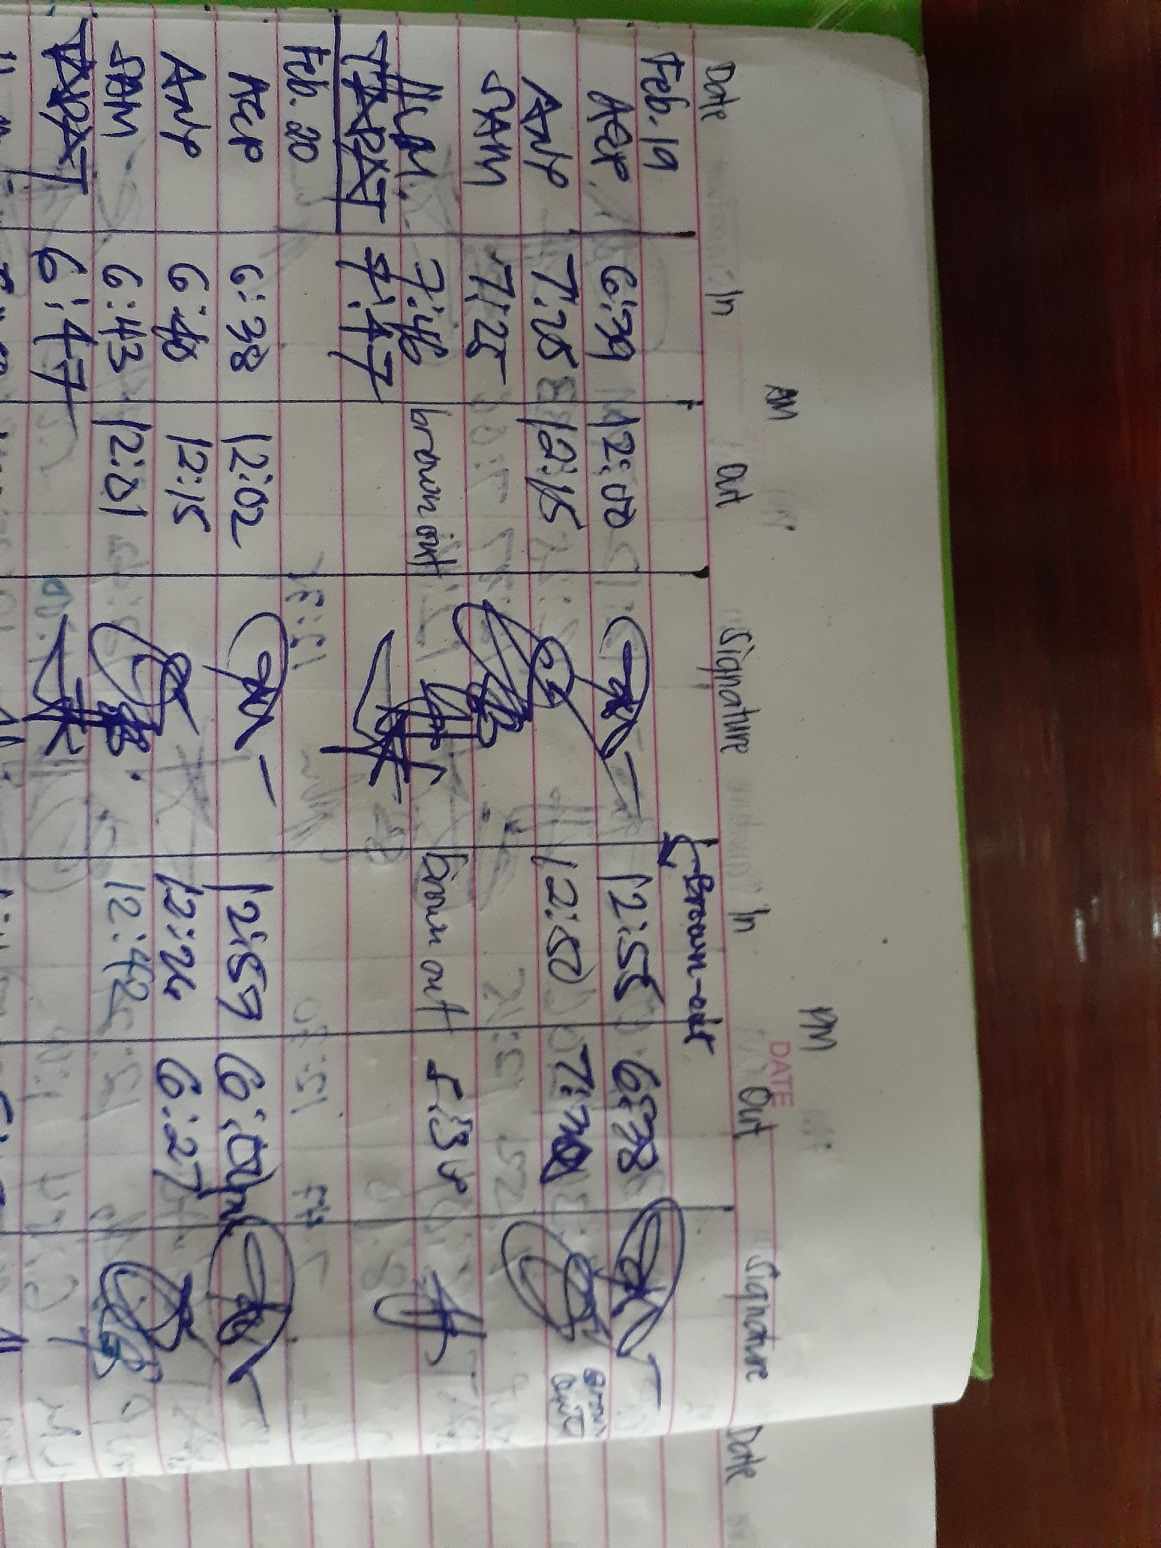 AM PM
DATE
Date In Out Signature In Out Signature Date
Feb. 19 Brown-out
AEP 6:39 12:00 12:55 6:38
ANP 7:25 12:15 12:50 Brown out
SAM 7:25
7:46 brown out Brown out 5:30
TAPAT 7:47
Feb. 20
AEP 6:38 12:02 12:59
ANP 6:40 12:15 12:26 6:27
SAM 6:43 12:01 12:42
TAPAT 6:47